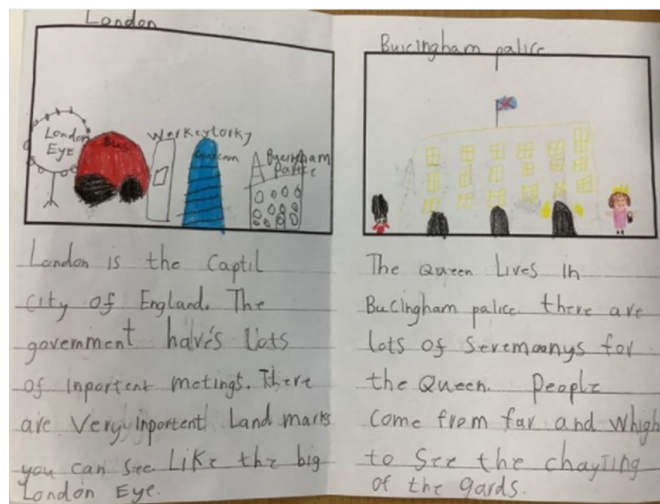 London
London
Eye
Bus
Warkeytorky
Bucingham
palice
London is the Captil
city of England. The
government halve's Lots
of Inportent metings. There
are Very inportent Land marks
you can see Like the big
London Eye.
Buicingham palice
The Queen Lives in
Bucingham palice. there are
lots of Seremoanys for
the Queen. People
come from far and Whigh
to See the chayjing
of the gards.